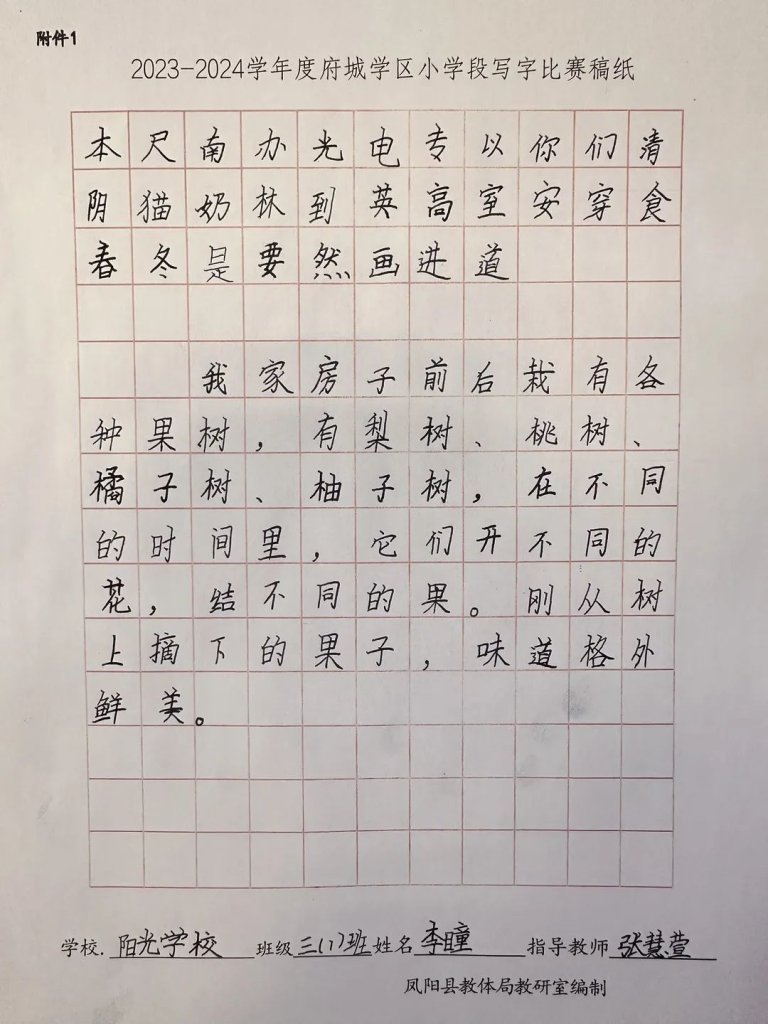 附件1
2023-2024学年度府城学区小学段写字比赛稿纸
本尺南办光电专以你们清
阴猫奶林到英高室安穿食
春冬是要然画进道
我家房子前后栽有各
种果树，有梨树、桃树、
橘子树、柚子树，在不同
的时间里，它们开不同的
花，结不同的果。刚从树
上摘下的果子，味道格外
鲜美。
学校.阳光学校 班级三(1)班姓名李瞳 指导教师张慧萱
凤阳县教体局教研室编制